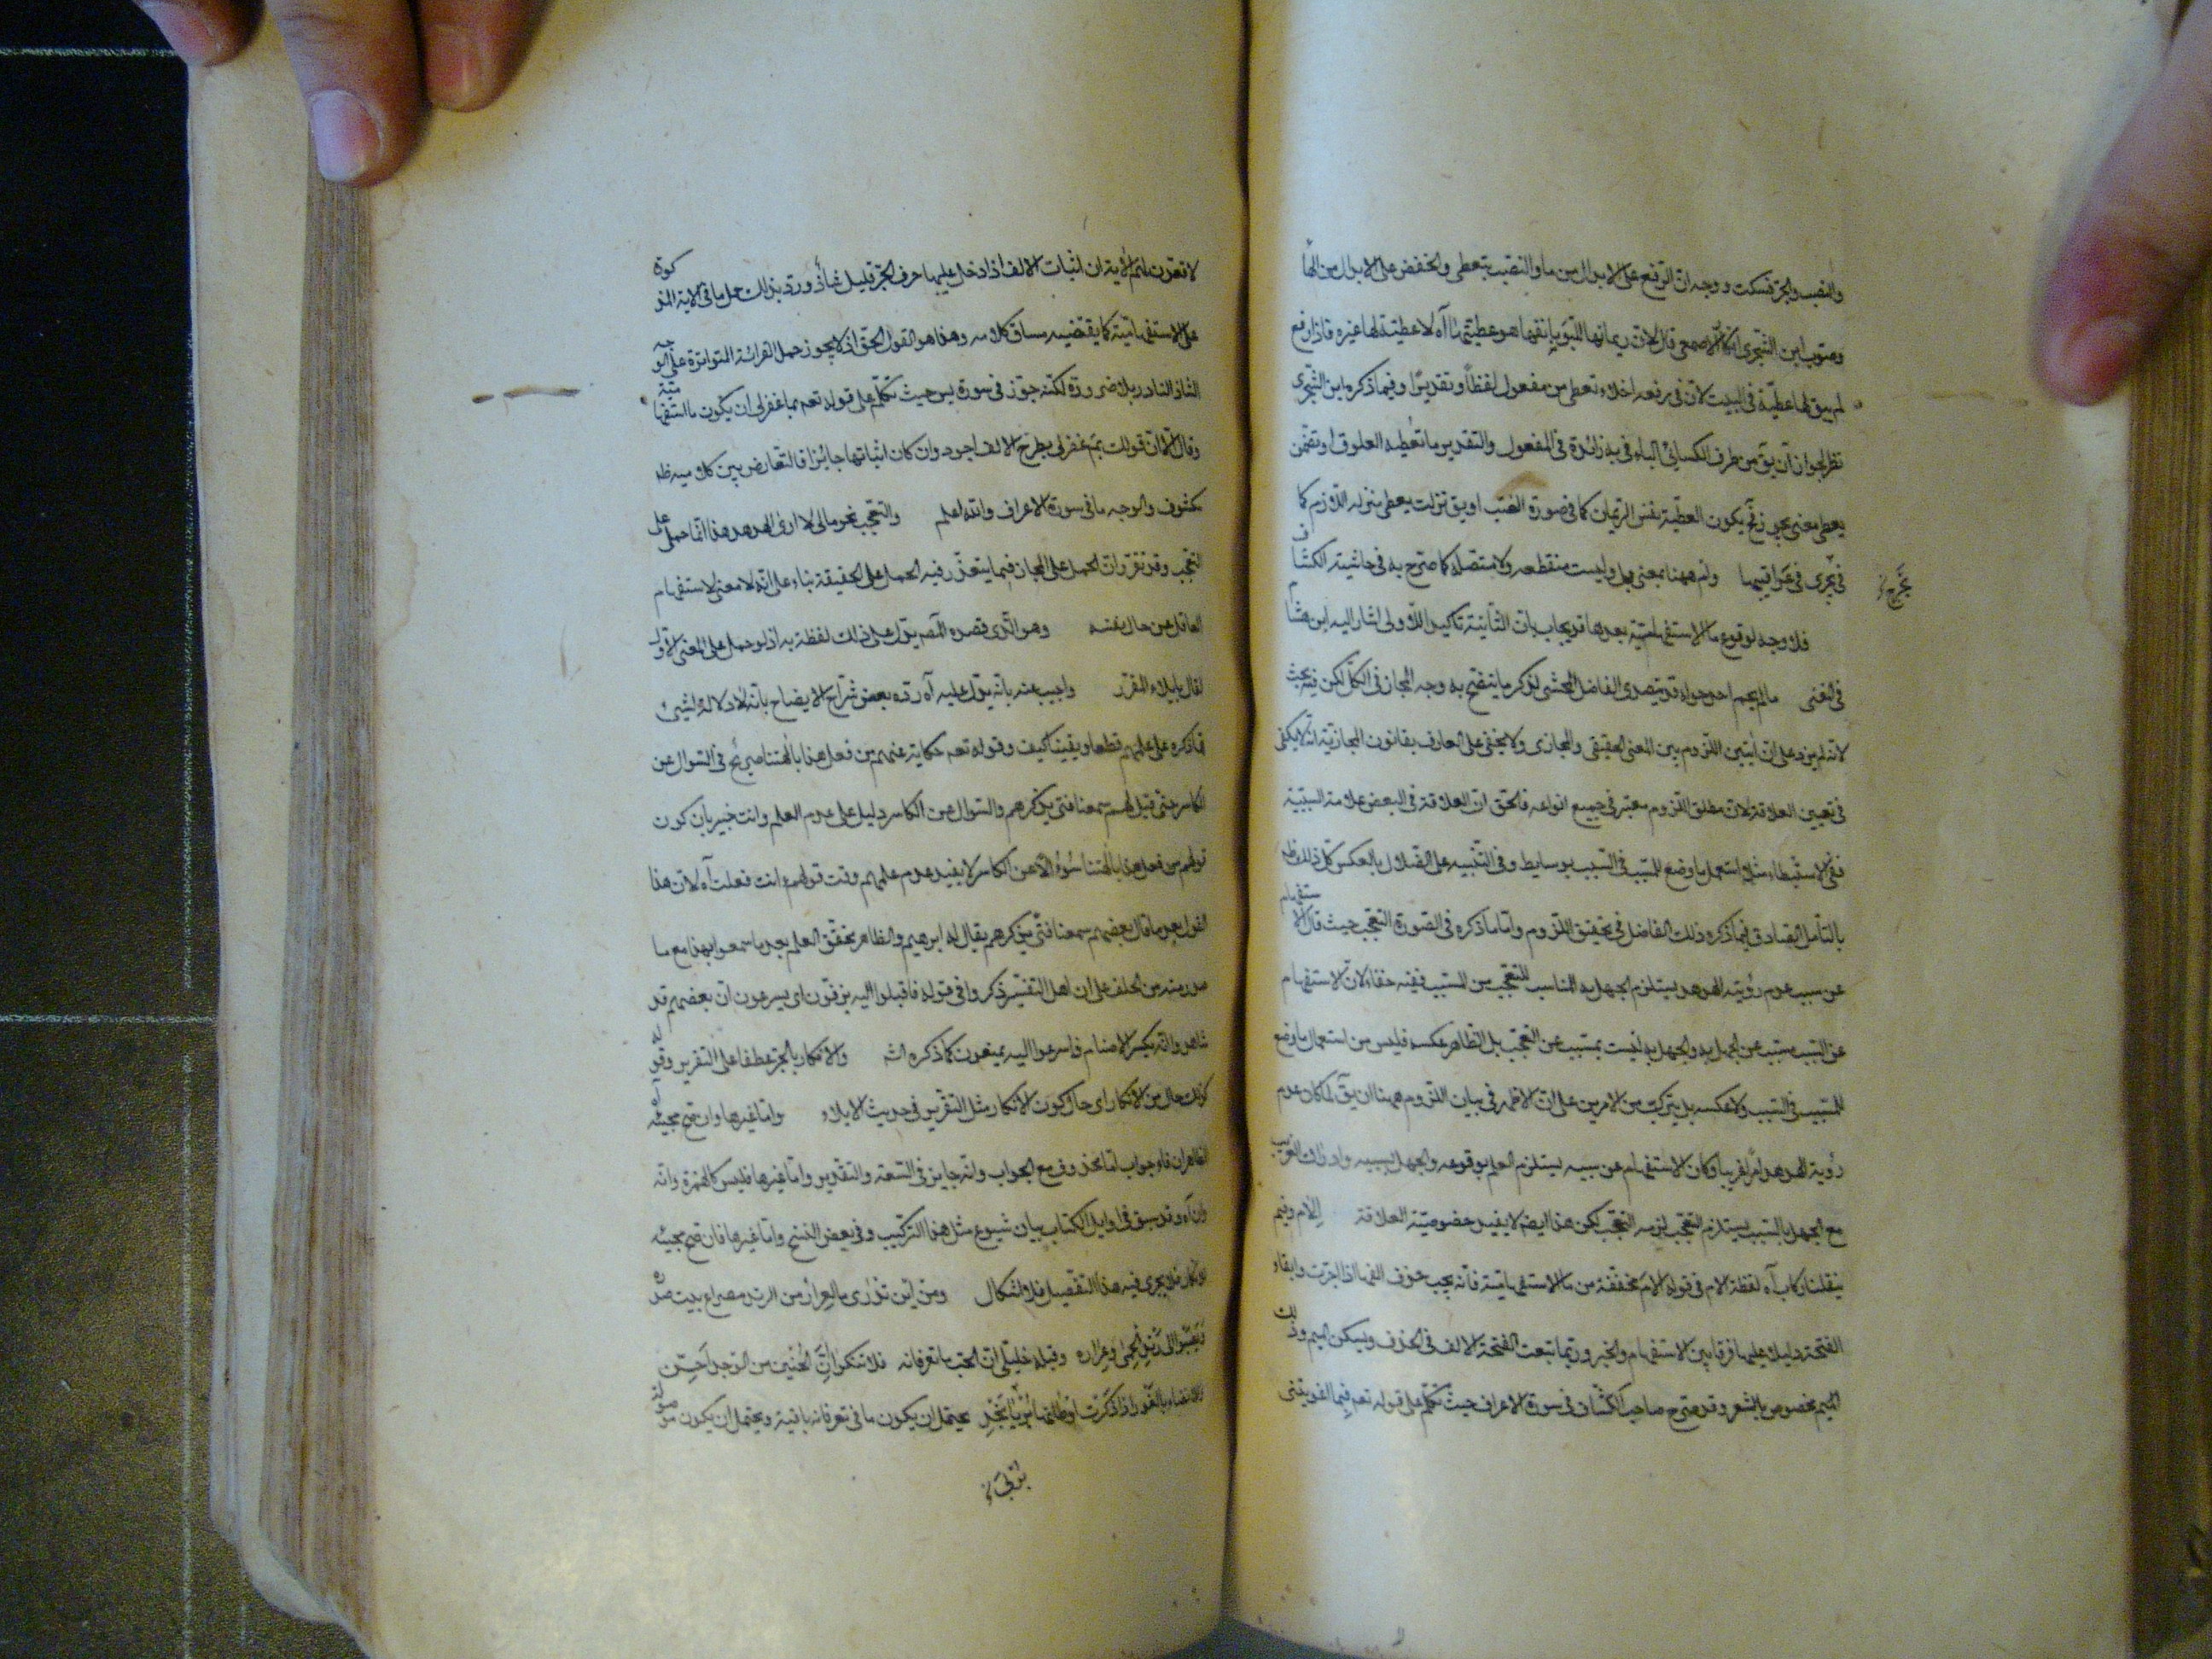 والنصب والجر فسكت ووجه ان الرفع على الابدال من ما والنصب بتعطى والخفض على الابدال من الهاء
وصوب ابن الشجرى انكار الاصمعى قال لان ريمانها للبو بانفها هو عطيتها اياه لا عطية لها غيره فاذا رفع
لم يبق لها عطية فى البيت لان فى رفعه اخلاء تعطى من مفعول لفظا وتقديرا وفيما ذكره ابن الشجرى
نظر لجواز ان يق من طرف الكسائى الباء فى به زائدة فى المفعول والتقدير ما تعطيه العلوق او تضمن
يعطى معنى يجود فح يكون العطية نفس الريمان كما فى صورة النصب او يق نزلت يعطى منزله اللازم كما
فى يجرى فى عراقيبها وام ههنا بمعنى بل وليست منقطعه ولا متصله كما صرح به فى حاشية الكشاف
فلا وجه لوقوع ما الاستفهامية بعدها قد يجاب بان الثانية تاكيد للاولى اشار اليه ابن هشام
فى المغنى ما لم يحم احد حوله قد تصدى الفاضل المحشى لذكر ما يتضح به وجه المجاز فى الكل لكن فيه بحث
لانه لم يزد على ان يبين اللزوم بين المعنى الحقيقى والمجازى ولا يخفى على العارف بقانون المجازية انه لا يكفى
فى تعيين العلاقة لان مطلق اللزوم معتبر فى جميع انواعه فالحق ان العلاقة فى البعض علاقة السببية
ففى الاستبطاء مثلا استعمل ما وضع للمسبب فى السبب بوسايط وفى التنبيه على الضلال بالعكس كل ذلك يظهر
بالتامل الصادق فيما ذكره ذلك الفاضل فى تحقيق اللزوم واما ما ذكره فى الصورة التعجب حيث قال الاستفهام
عن سبب عدم رؤية الهدهد يستلزم الجهل به المناسب للتعجب من المسبب ففيه خفاء لان الاستفهام
عن السبب مسبب عن الجهل به والجهل به ليست بمسبب عن التعجب بل الظاهر عكسه فليس من استعمال ما وضع
للمسبب فى السبب ولا عكسه بل يتركب من الامرين على ان الاظهر فى بيان اللزوم ههنا ان يق لما كان عدم
رؤية الهدهد امرا غريبا وكان الاستفهام عن سببه يستلزم العلم بوقوعه والجهل بسببه وادراك الغريب
مع الجهل بالسبب يستلزم التعجب لزمه التعجب لكن هذا ايضا لا يفيد خصوصية العلاقة الام وفيم
ينقلنا ركاب آه لفظة الام فى قوله الام مخففة من ما الاستفهامية فانه يجب حذف الفها اذا اجرت وابقاء
الفتحة دليلا عليها فرقا بين الاستفهام والخبر وربما تبعت الفتحة الالف فى الحذف ويسكن الميم وذلك
الميم مخصوص بالشعر وقد صرح صاحب الكشاف فى سورة الاعراف حيث تكلم على قوله تعه فبما اغويتنى
يجرح
لاقعدن لهم الآية ان اثبات الالف اذا دخل عليها حرف الجر قليل شاذ ورد بذلك حمل ما فى الاية المذكورة
على الاستفهامية كما يقتضيه مساق كلامه وهذا هو القول الحق اذ لا يجوز حمل القرائة المتواترة على الوجه
الشاذ النادر بلا ضرورة لكنه جوز فى سورة يس حيث تكلم على قوله تعه بما غفر لى ان يكون ما استفهامية
وقال الا ان قولك بم غفر لى بطرح الالف اجود وان كان اثباتها جايزا فالتعارض بين كلاميه ظه
مكشوف والوجه ما فى سورة الاعراف والله اعلم والتعجب نحو مالى لا ارى الهدهد هذا انما حمل على
التعجب وقد تقرر ان الحمل على المجاز فيما يتعذر فيه الحمل على الحقيقة بناء على انه لا معنى لاستفهام
العاقل عن حال نفسه وهو الذى قصده المصه يدل على ذلك لفظة به اذ لو حمل على المعنى الاول
لقال بايلاء المقرر واجيب عنه بانه يدل عليه آه رده بعض شراح الايضاح بانه لا دلالة لشئ
مما ذكره على علمهم قطعا ويقينا كيف وقوله تعه حكاية عنهم من فعل هذا بالهتنا صريح فى السؤال عن
الكاسر حتى قيل لهم سمعنا فتى يذكرهم والسؤال عن الكاسر دليل على عدم العلم وانت خبير بان كون
قولهم من فعل هذا بالهتنا سؤالا عن الكاسر لا يفيد عدم علمهم وقت قولهم ءانت فعلت آه لان هذا
القول بعد ما قال بعضهم سمعنا فتى يذكرهم يقال له ابرهيم والظاهر تحقق العلم بعد ما سمعوا بهذا مع ما
صدر منه من الحلف على ان اهل التفسير ذكروا فى قوله فاقبلوا اليه يزفون اى يسرعون ان بعضهم قد
شاهدوا انه يكسر الاصنام فاسرعوا اليه يمنعون كما ذكره الشه والانكار بالجر عطفا على التقرير وقوله
كذلك حال من الانكار اى حال كون الانكار مثل التقرير فى حديث الايلاء واما غيرها وان صح مجيئه آه
الظاهر ان فاء جواب اما محذوف مع الجواب وانه جايز فى السعة والتقدير واما غيرها فليس كالهمزة وانه
وان آه وقد سبق فى اوايل الكتاب بيان شيوع مثل هذا التركيب وفى بعض النسخ واما غيرها فان صح مجيئه
للانكار فلا يجرى فيه هذا التفصيل فلا اشكال ومن اين تدرى ما العرار من الرند مصراع بيت صدره
وقبله خليلى ان الحب ما تعرفانه فلا تنكرا ان الحنين من الوجد احن
اذا ذكرت اوطانها بربى نجد يحتمل ان يكون ما فى تعرفانه نافية ويحتمل ان يكون موصولة
بربى